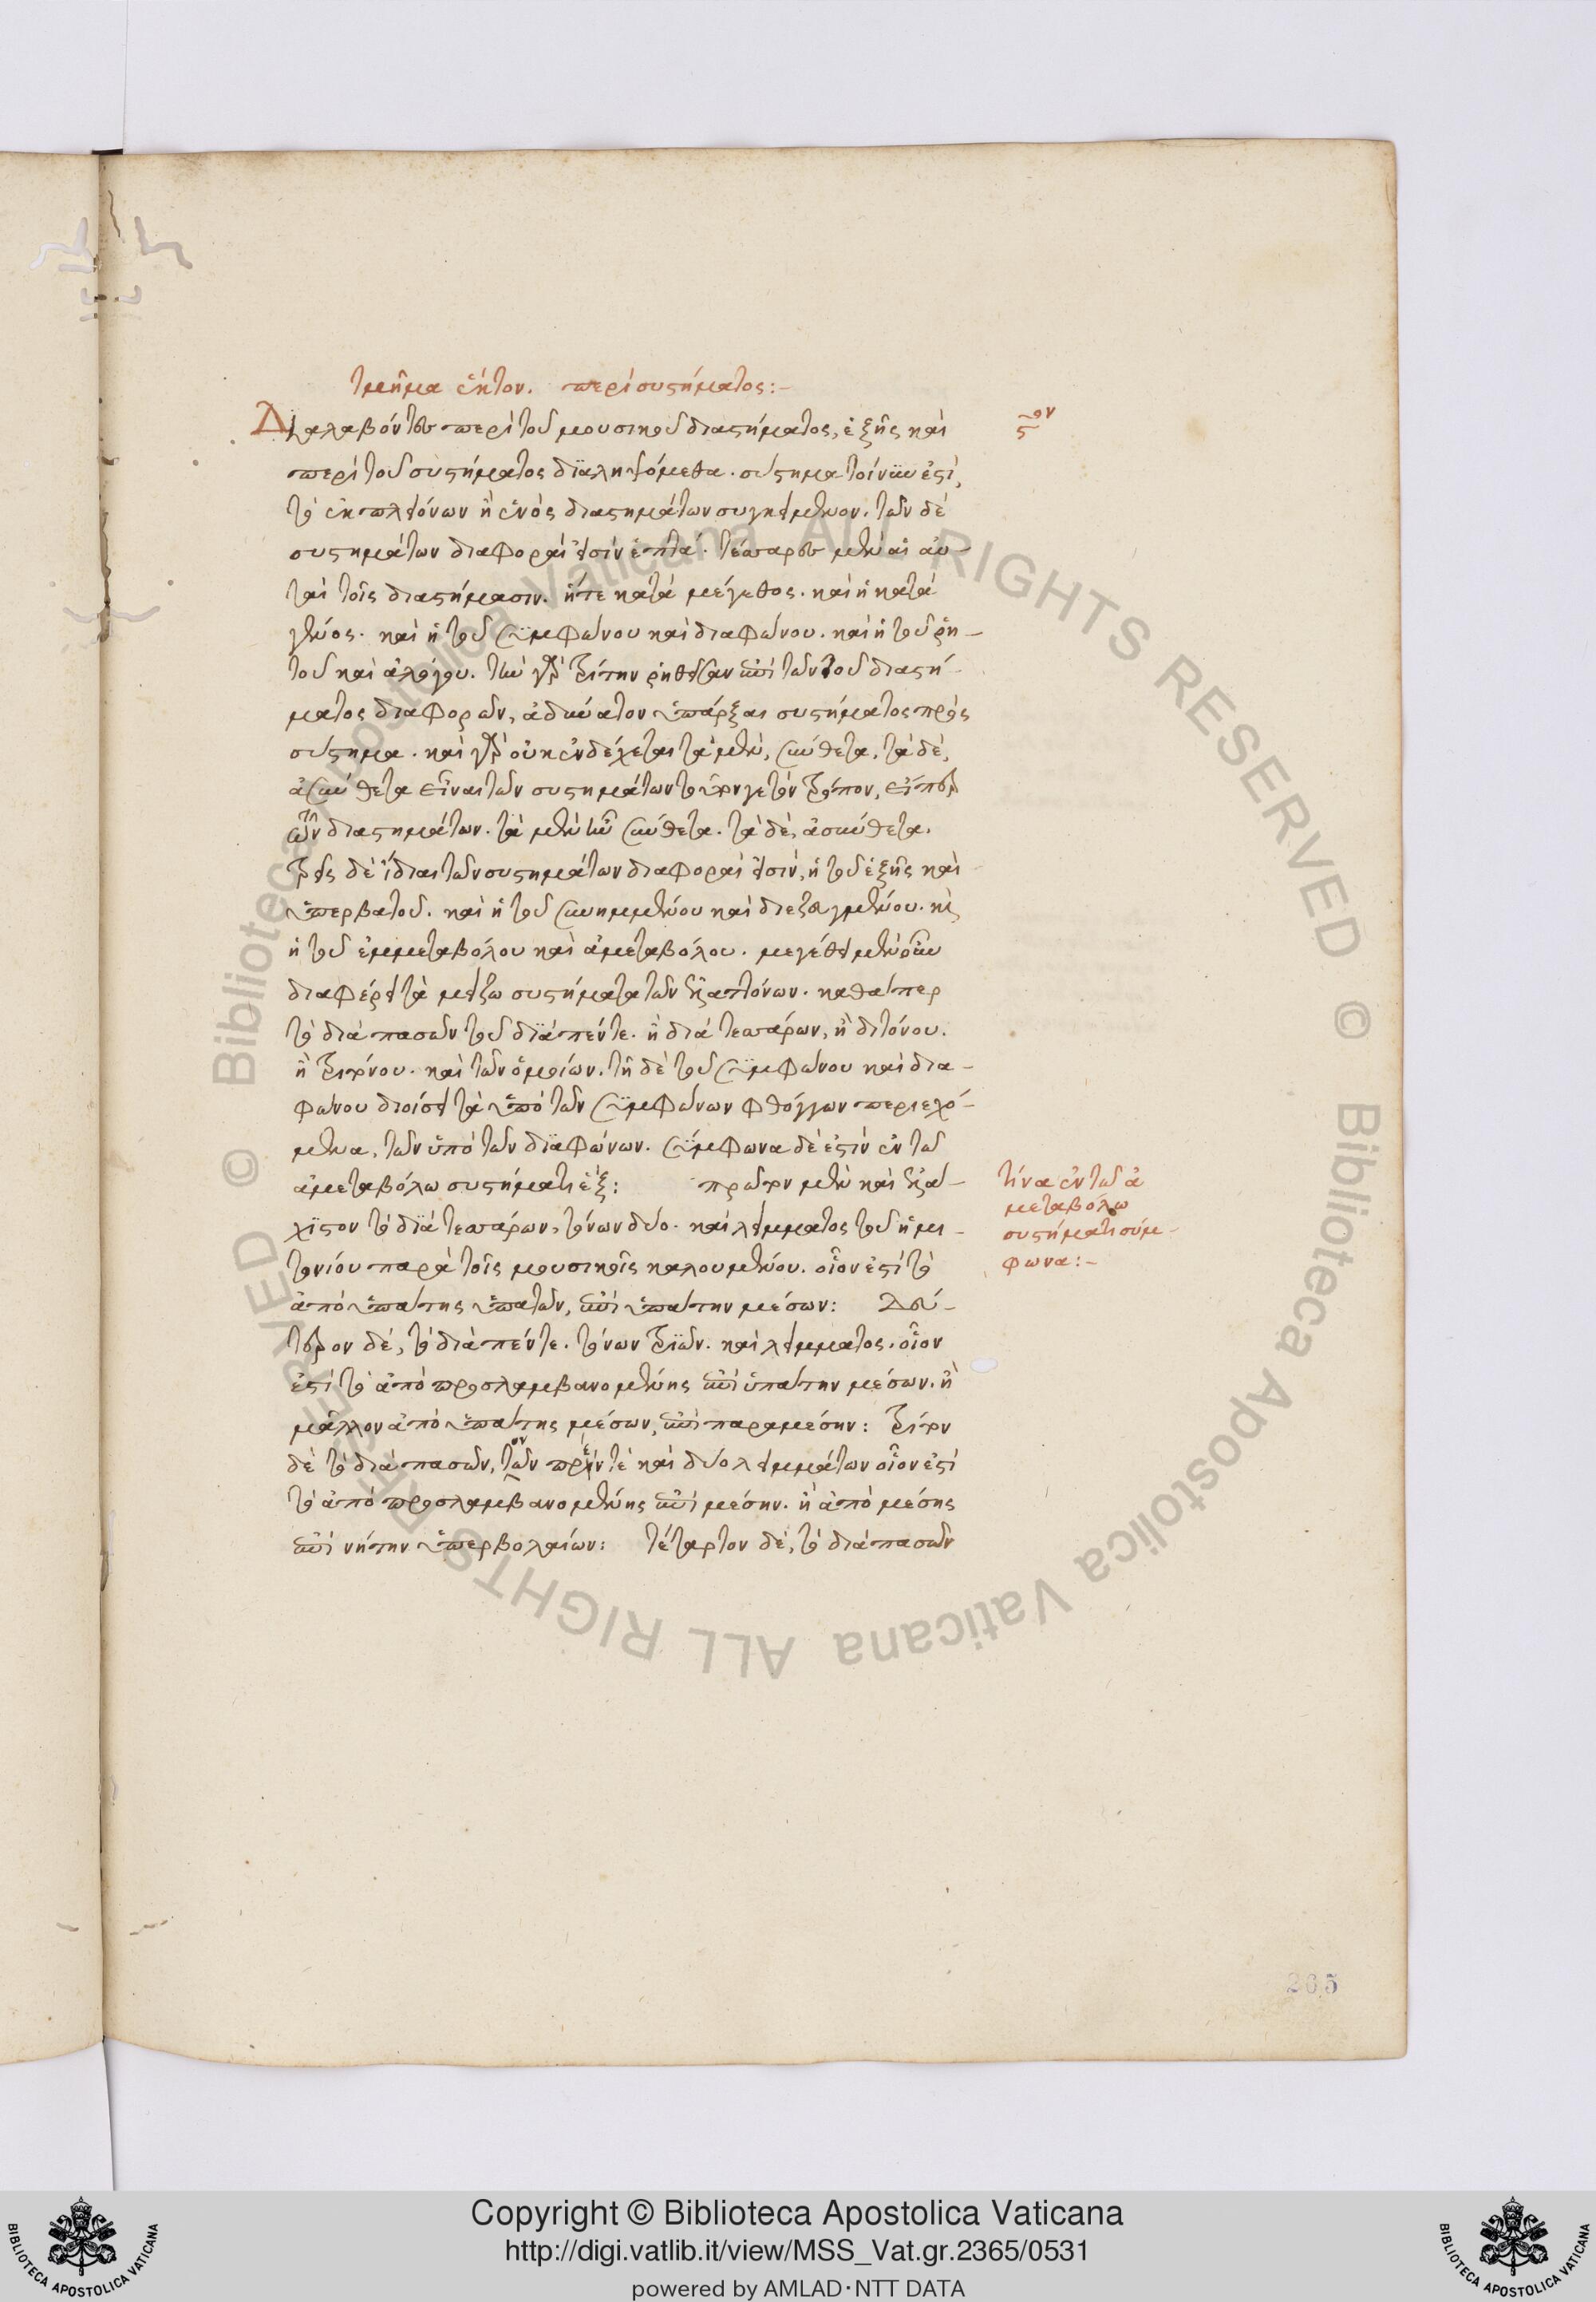 τμῆμα ἕκτον. περὶ συστήματος:-
Διαλαβόντες περὶ τοῦ μουσικοῦ διαστήματος, ἑξῆς καὶ
ϛον
περὶ τοῦ συστήματος διαληψόμεθα. σύστημα τοίνυν ἐστὶ,
τὸ ἐκ πλειόνων ἢ ἑνὸς διαστημάτων συγκείμενον. τῶν δὲ
συστημάτων διαφοραί εἰσιν ἑπτά. τέσσαρες μὲν αἱ αὐ-
ταὶ τοῖς διαστήμασιν. ἥτε κατὰ μέγεθος. καὶ ἡ κατὰ
γένος. καὶ ἡ τοῦ συμφώνου καὶ διαφώνου. καὶ ἡ τοῦ ῥη-
τοῦ καὶ ἀλόγου. τὴν γὰρ τρίτην ῥηθεῖσαν ἐπὶ τῶν τοῦ διαστή-
ματος διαφορῶν, ἀδύνατον ὑπάρξαι συστήματος πρὸς
σύστημα. καὶ γὰρ οὐκ ἐνδέχεται τὰ μὲν, σύνθετα, τὰ δὲ,
ἀσύνθετα εἶναι τῶν συστημάτων τοῦτόν γε τὸν τρόπον, εἴπερ
τῶν διαστημάτων. τὰ μὲν ἦν σύνθετα. τὰ δὲ, ἀσύνθετα.
τρεῖς δὲ ἴδιαι τῶν συστημάτων διαφοραί εἰσιν, ἡ τοῦ ἑξῆς καὶ
ὑπερβατοῦ. καὶ ἡ τοῦ συνημμένου καὶ διεζευγμένου. καὶ
ἡ τοῦ ἐμμεταβόλου καὶ ἀμεταβόλου. μεγέθει μὲν οὖν
διαφέρει τὰ μείζω συστήματα τῶν ἐλαττόνων. καθάπερ
τὸ διὰ πασῶν τοῦ διὰ πέντε. ἢ διὰ τεσσάρων, ἢ διτόνου.
ἢ τριτόνου. καὶ τῶν ὁμοίων. τῇ δὲ τοῦ συμφώνου καὶ δια-
φώνου διοίσει τὰ ὑπὸ τῶν συμφώνων φθόγγων περιεχό-
μενα, τῶν ὑπὸ τῶν διαφώνων. σύμφωνα δέ ἐστιν ἐν τῷ
ἀμεταβόλω συστήματι ἕξ: πρῶτον μὲν καὶ ἐλά-
χιστον τὸ διὰ τεσσάρων, τόνων δύο. καὶ λείμματος τοῦ ἡμι-
τονίου παρὰ τοῖς μουσικοῖς καλουμένου. οἷον ἐστὶ τὸ
ἀπὸ ὑπάτης ὑπατῶν, ἐπὶ ὑπάτην μέσων: Δεύ-
τερον δὲ, τὸ διὰ πέντε. τόνων τριῶν. καὶ λείμματος. οἷον
ἐστὶ τὸ ἀπὸ προσλαμβανομένης ἐπὶ ὑπάτην μέσων. ἢ
μᾶλλον ἀπὸ ὑπάτης μέσων, ἐπὶ παραμέσην: τρίτον
δὲ τὸ διὰ πασῶν, τόνων πέντε καὶ δύο λειμμάτων οἷον ἐστὶ
τὸ ἀπὸ προσλαμβανομένης ἐπὶ μέσην. ἢ ἀπὸ μέσης
ἐπὶ νήτην ὑπερβολαίων: τέταρτον δὲ, τὸ διὰ πασῶν
τίνα ἐν τῷ ἀ
μεταβόλω
συστήματι σύμ-
φωνα:-
265
Copyright © Biblioteca Apostolica Vaticana
http://digi.vatlib.it/view/MSS_Vat.gr.2365/0531
powered by AMLAD·NTT DATA
© Biblioteca Apostolica Vaticana ALL RIGHTS RESERVED
© Biblioteca Apostolica Vaticana ALL RIGHTS RESERVED
BIBLIOTECA APOSTOLICA VATICANA
BIBLIOTECA APOSTOLICA VATICANA